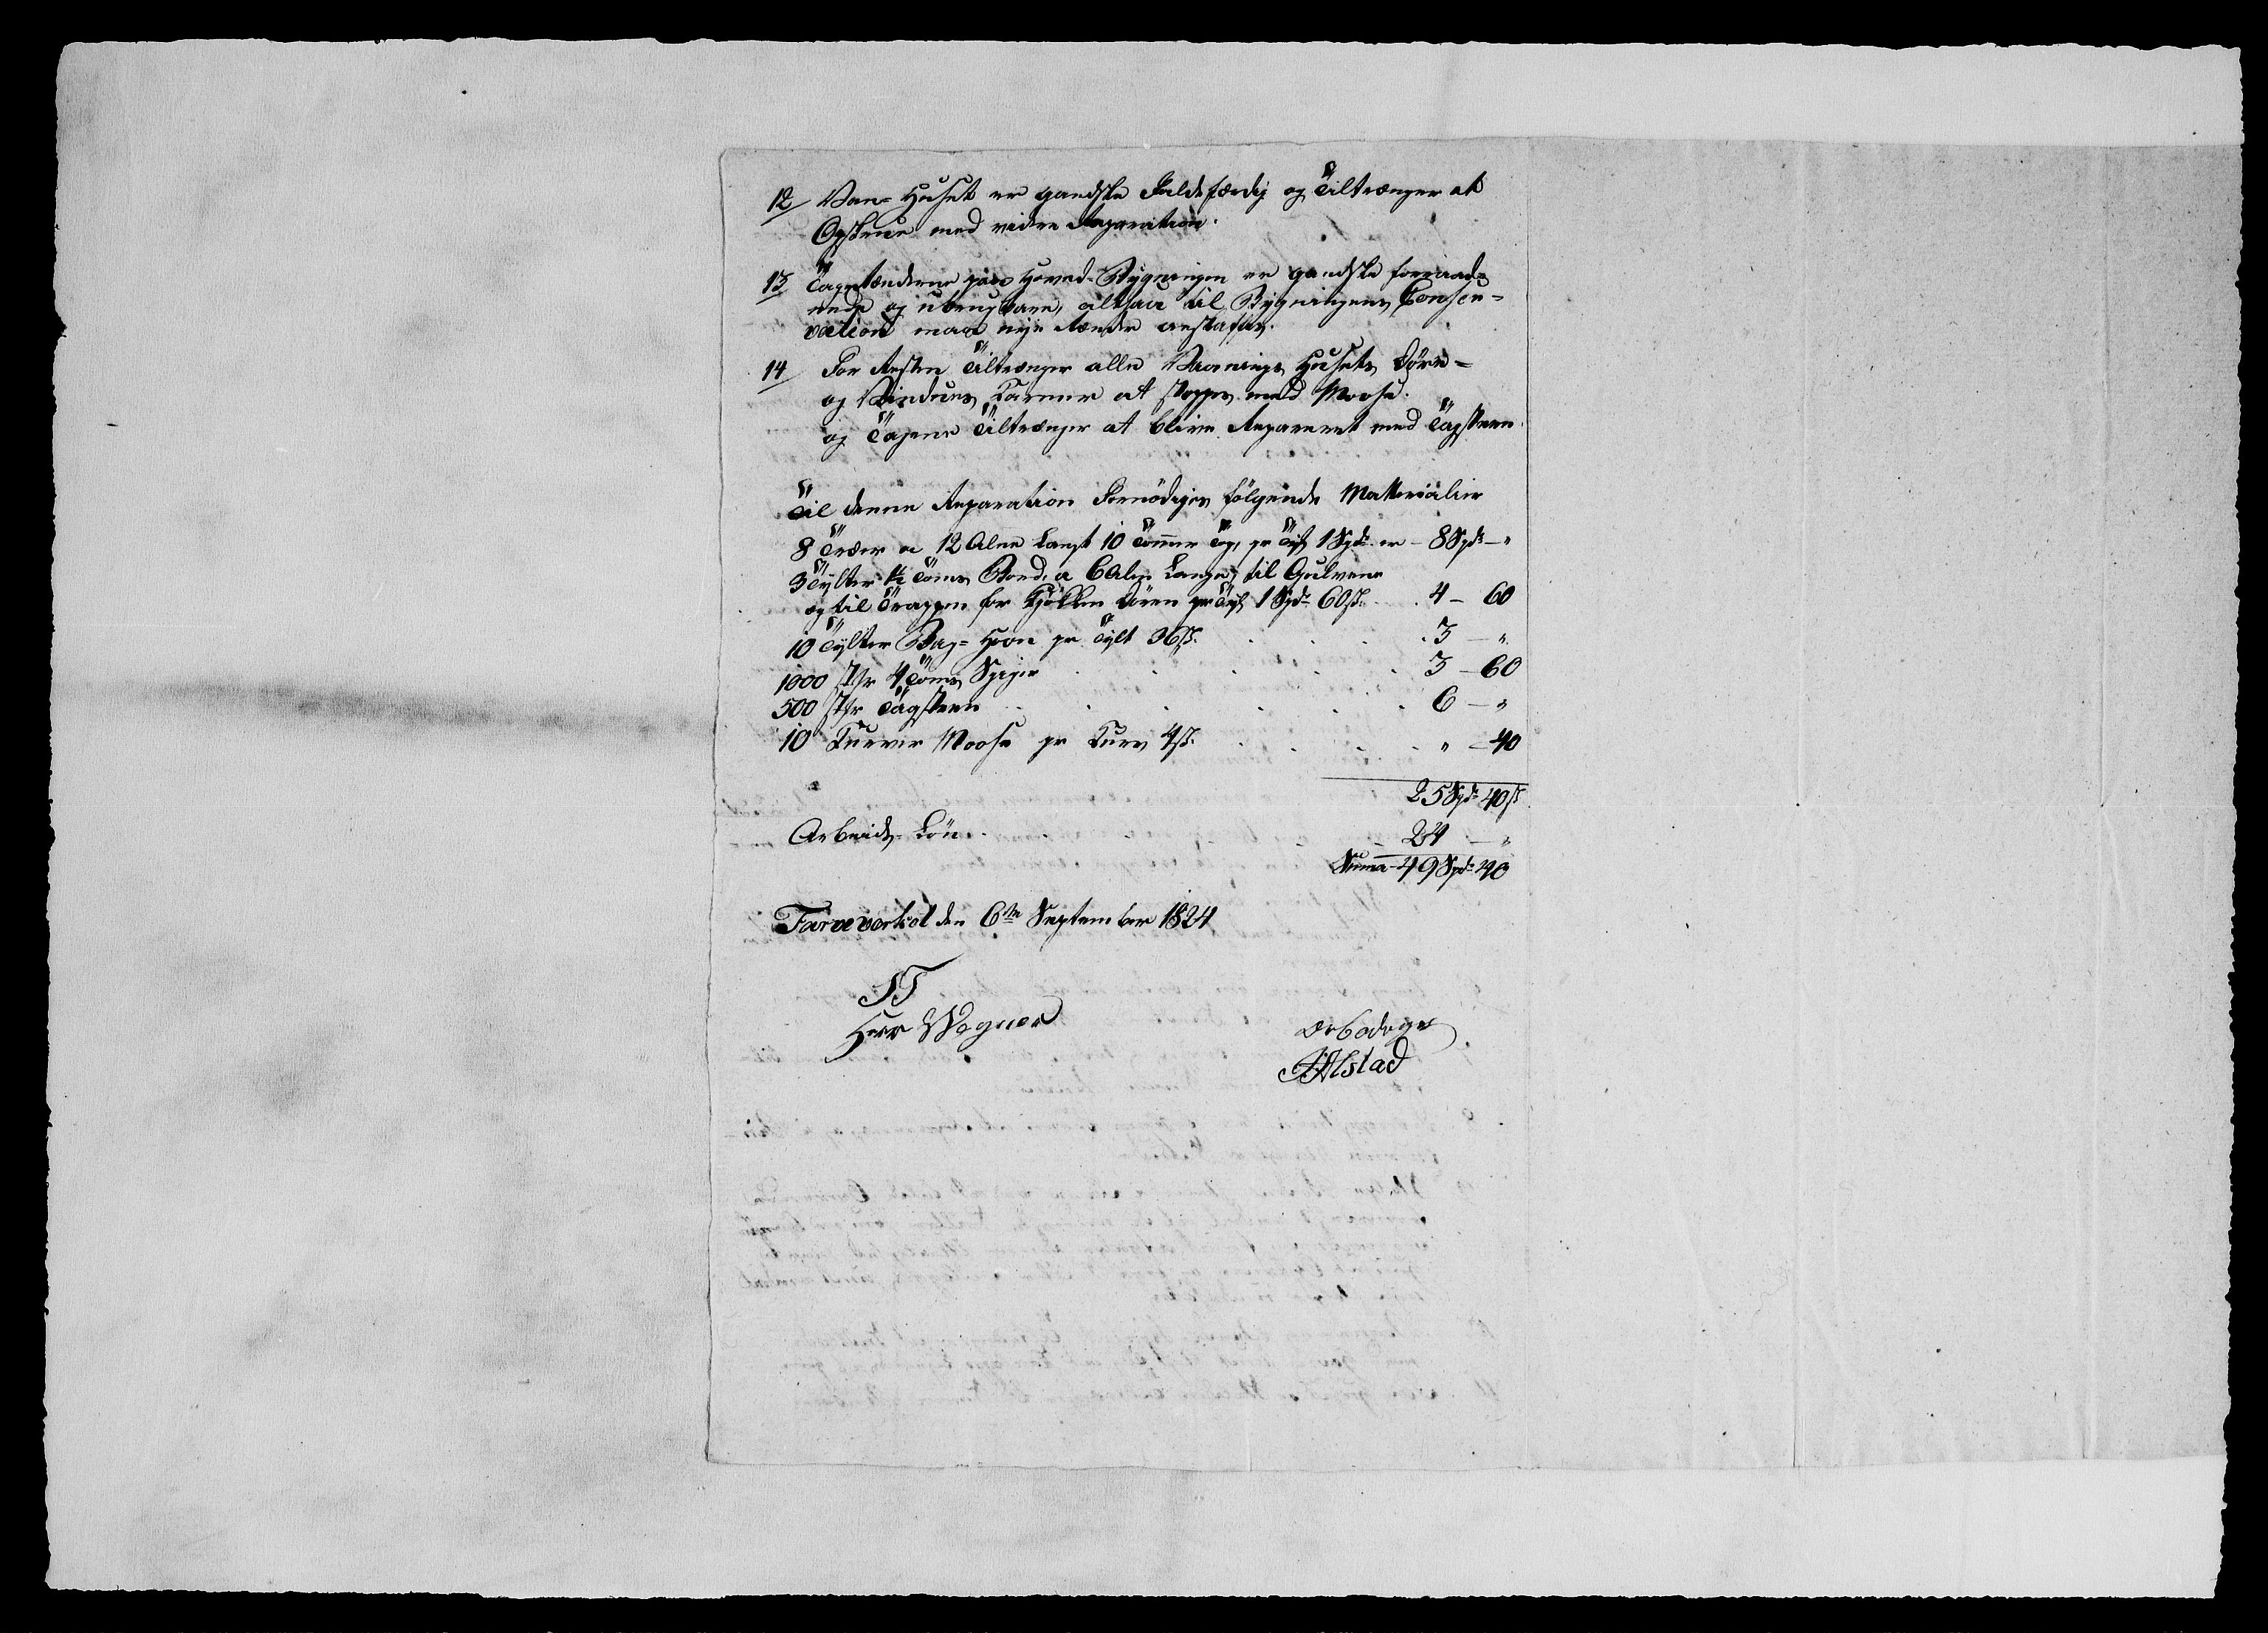 12/ Van= Huset er gandske Faldefærdig og Tiltrænger at
Opsteene med videre Reparation.
13/ Tagrenderne paa Hoved=Bygningen er gandske forraad=
nede og ubrugbare, altsaa til Bygningens Conser=
vation maa nye Render anskaffes.
14/ For Resten Tiltrænger alle Vaanings Husets Döre=
og Vindues Karmer at stoppes med Moose.
og Tagene Tiltrænger at blive Repareret med Tagsteen.
Til denne Reparation Fornödiges fölgende Matterialier
8 Træer a 12 Alne Langt 10 Tommer Top, pr Tylt 1 Spd er — 8 Spd — "
3 Tylter 1½ Toms Bord, a 6 Aln Lange, til Gulvene
og til Trappen for Kjökken Dören pr Tylt 1 Spd 60 s . 4 — 60
10 Tylter Bag=Hon pr Tylt 36 s . . . . 3 — "
1000 Stkr 4 Toms Spiger . . . . . 3 — 60
500 Stkr Tagsteen . . . . . . 6 — "
10 Kurver Moose pr Kurv 4 s . . . . " — 40
25 Spd 40 s
Arbeids=Lön . . . . 24 — "
Summa 49 Spd 40
Farveverket den 6te September 1824
ST
Herr Wegner
ærbödigst
Alstad